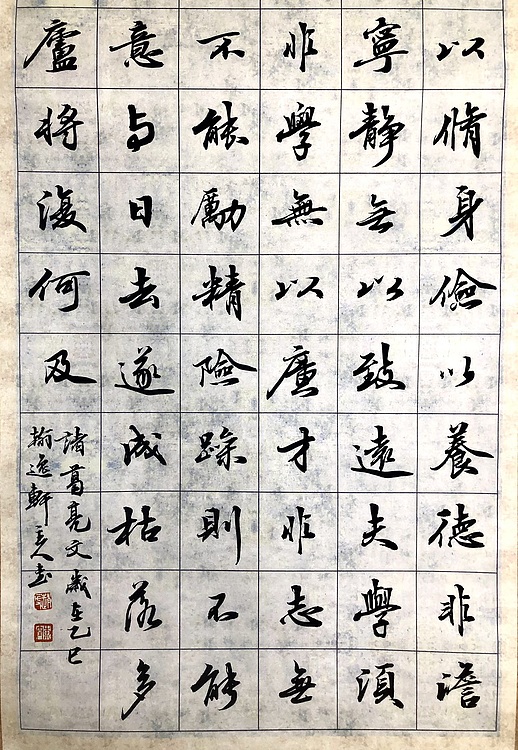 以脩身儉以養德非澹
寧靜無以致遠夫學須
非學無以廣才非志無
不能勵精險躁則不能
意与日去遂成枯落多
廬將復何及
諸葛亮文歲在乙巳
翰逸軒主人書